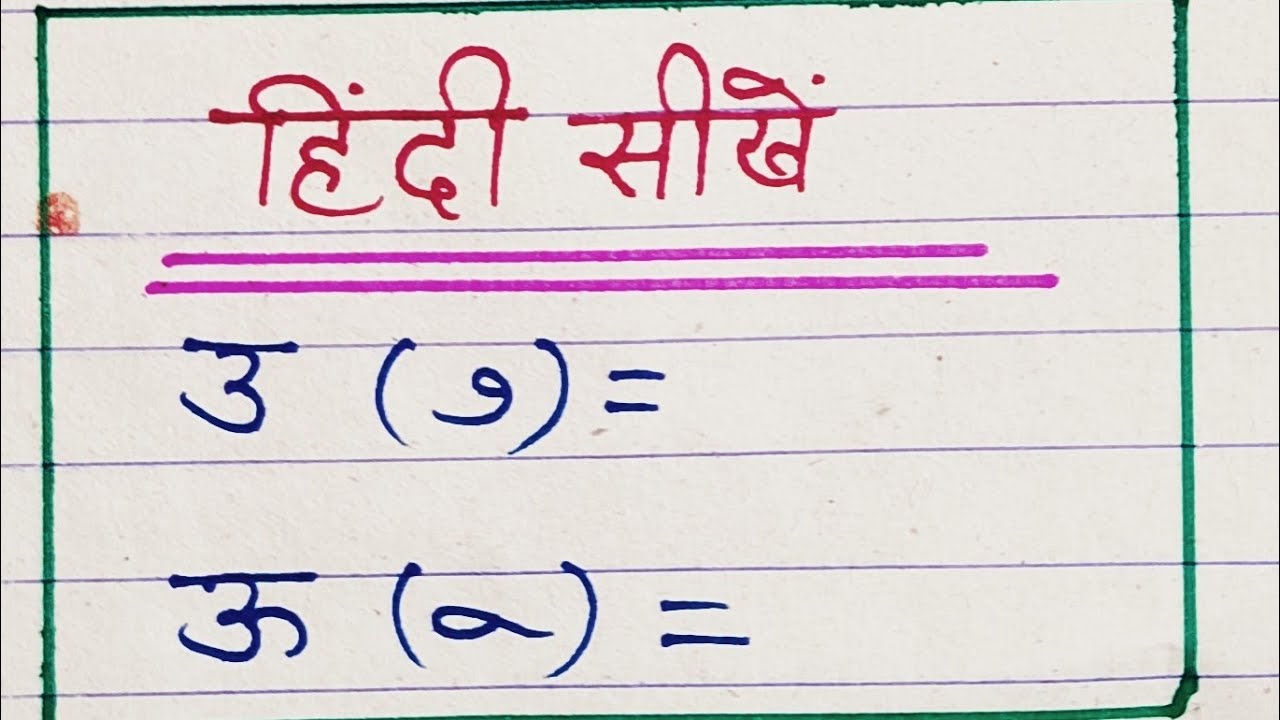 हिंदी सीखें
उ ( ु ) =
ऊ ( ू ) =